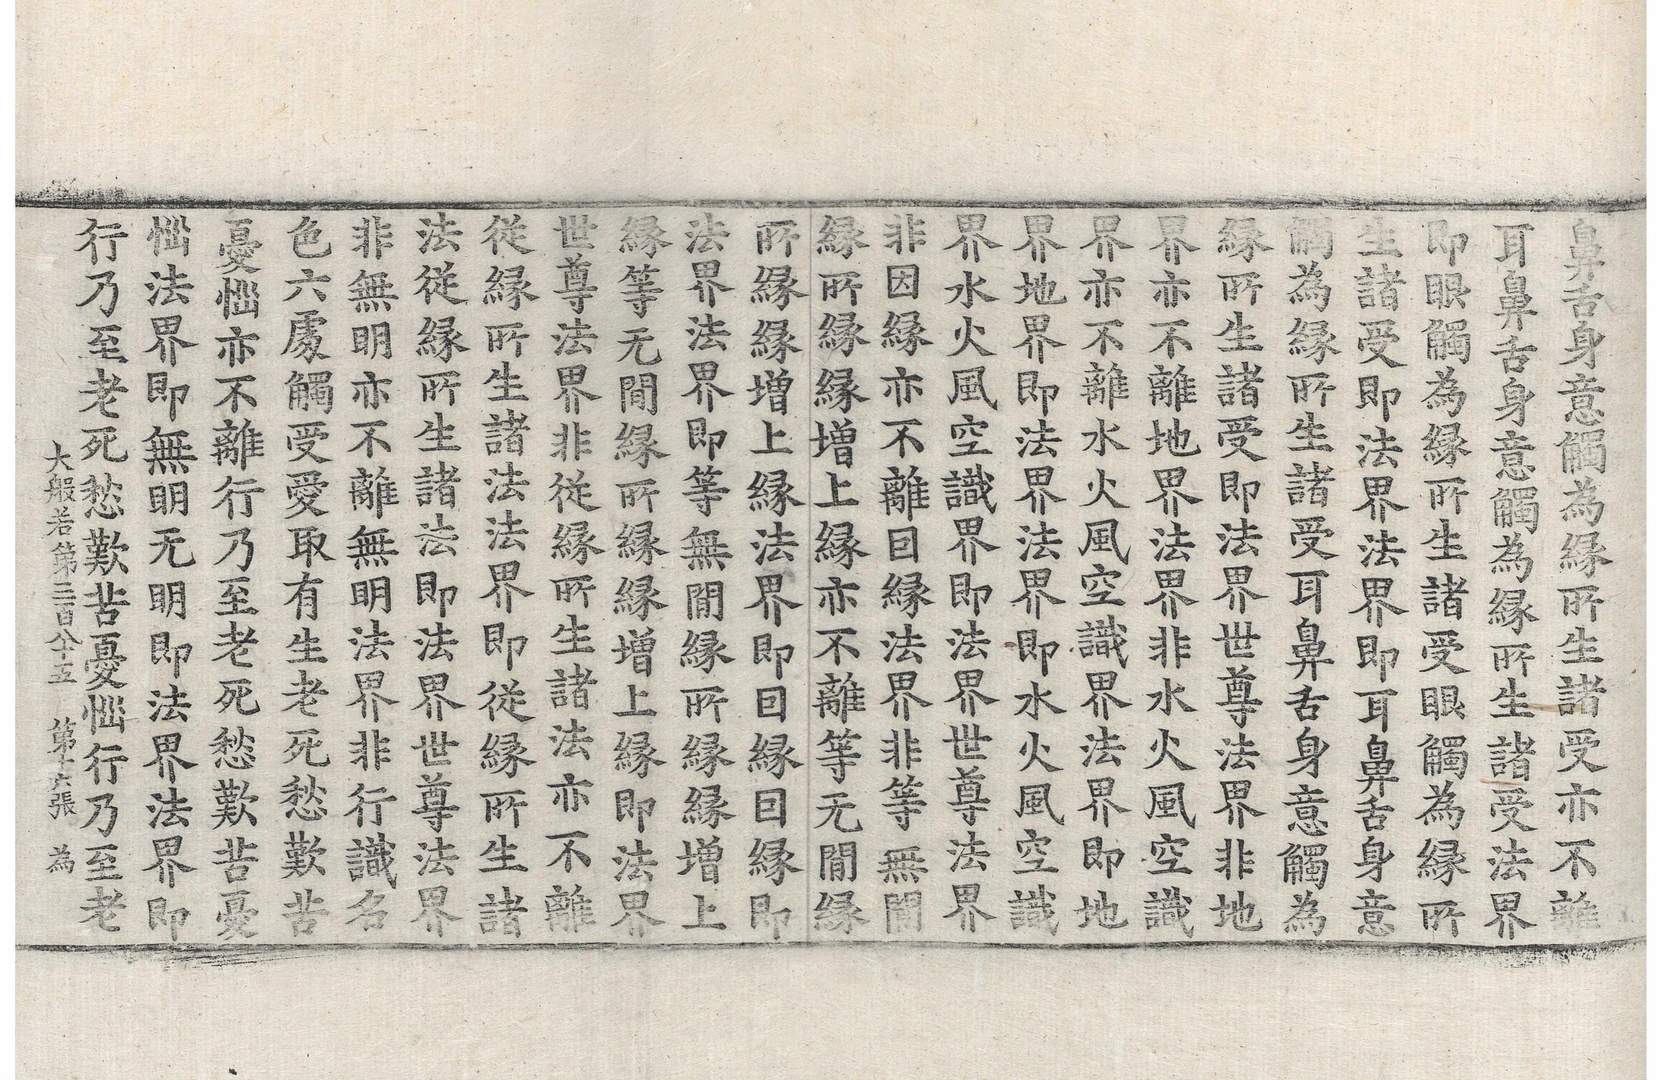 鼻舌身意觸為縁所生諸受亦不離
耳鼻舌身意觸為縁所生諸受法界
即眼觸為縁所生諸受眼觸為縁所
生諸受即法界法界即耳鼻舌身意
觸為縁所生諸受耳鼻舌身意觸為
縁所生諸受即法界世尊法界非地
界亦不離地界法界非水火風空識
界亦不離水火風空識界法界即地
界地界即法界法界即水火風空識
界水火風空識界即法界世尊法界
非因縁亦不離囙縁法界非等無閒
縁所縁縁増上縁亦不離等无閒縁
所縁縁増上縁法界即囙縁囙縁即
法界法界即等無閒縁所縁縁増上
縁等无閒縁所縁縁増上縁即法界
世尊法界非從縁所生諸法亦不離
從縁所生諸法法界即從縁所生諸
法從縁所生諸法即法界世尊法界
非無明亦不離無明法界非行識名
色六處觸受愛取有生老死愁歎苦
憂惱亦不離行乃至老死愁歎苦憂
惱法界即無明无明即法界法界即
行乃至老死愁歎苦憂惱行乃至老
大般若第三百八十五 第十六張 為